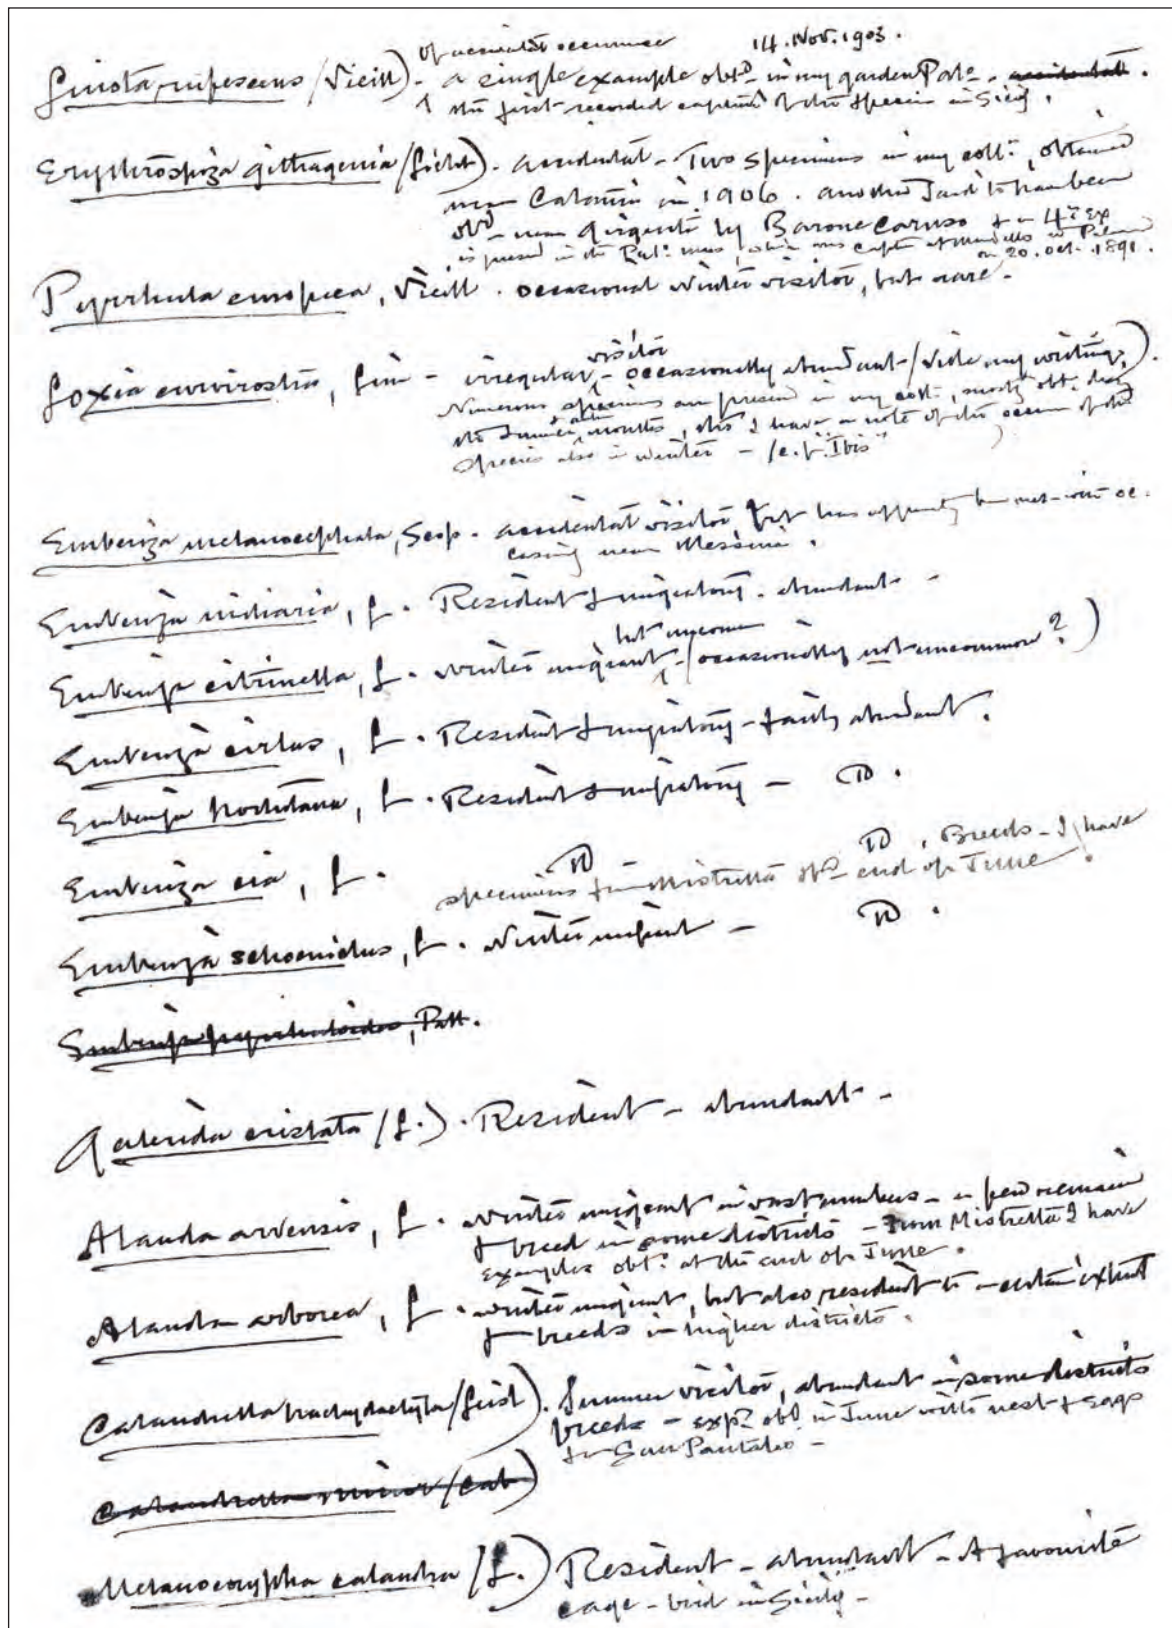 Of accidental occurrence 14. Nov. 1903.
Linota rufescens (Vieill) - a single example obtd - in my garden Palo - accidental.
the first recorded capture of the species in Sicily.
Erythrospiza githaginea (Licht). accidental - Two specimens in my coll:, obtained
near Catania in 1906. another said to have been
obd - near Girgenti by Barone Caruso & a 4th Ex
is present in the Pal: mus, which was captd at Mondello nr Palermo
on 20. Oct. 1891.
Pyrrhula europaea, Vieill. occasional winter visitor, but rare -
visitor
Loxia curvirostra, Lin - irregular, - occasionally abundant - (vide my writings).
Numerous specimens are present in my coll:, mostly obt: during
the Summer & autn months, tho' I have a note of the occurr of the
species also in winter - (c.f. "Ibis")
Emberiza melanocephala, Scop. accidental visitor, but has apparently been met with oc-
casiony near Messina.
Emberiza miliaria, L. Resident & migratory. abundant -
but uncomn
Emberiza citrinella, L. winter migrant, - (occasionally not uncommon?)
Emberiza cirlus, L. Resident & migratory - fairly abundant.
Emberiza hortulana, L. Resident & migratory - D.
Emberiza cia, L. D D. Breeds - I have
specimens fm Mistretta obd end of June.
Emberiza schoeniclus, L. winter migrant - D.
Emberiza pyrrhuloides, Pall.
Galerida cristata (L.). Resident - abundant -
Alauda arvensis, L. winter migrant in vast numbers - a few remain
& breed in some districts - From Mistretta I have
examples obt: at the end of June.
Alauda arborea, L. winter migrant, but also resident to a certain extent
& breeds in higher districts.
Calandrella brachydactyla (Leisl). Summer visitor, abundant in some districts
breeds - expl obd in June with nest & eggs
fm San Pantaleo -
Calandrella minor (Cab)
Melanocorypha calandra (L.) Resident - abundant - A favourite
cage - bird in Sicily -